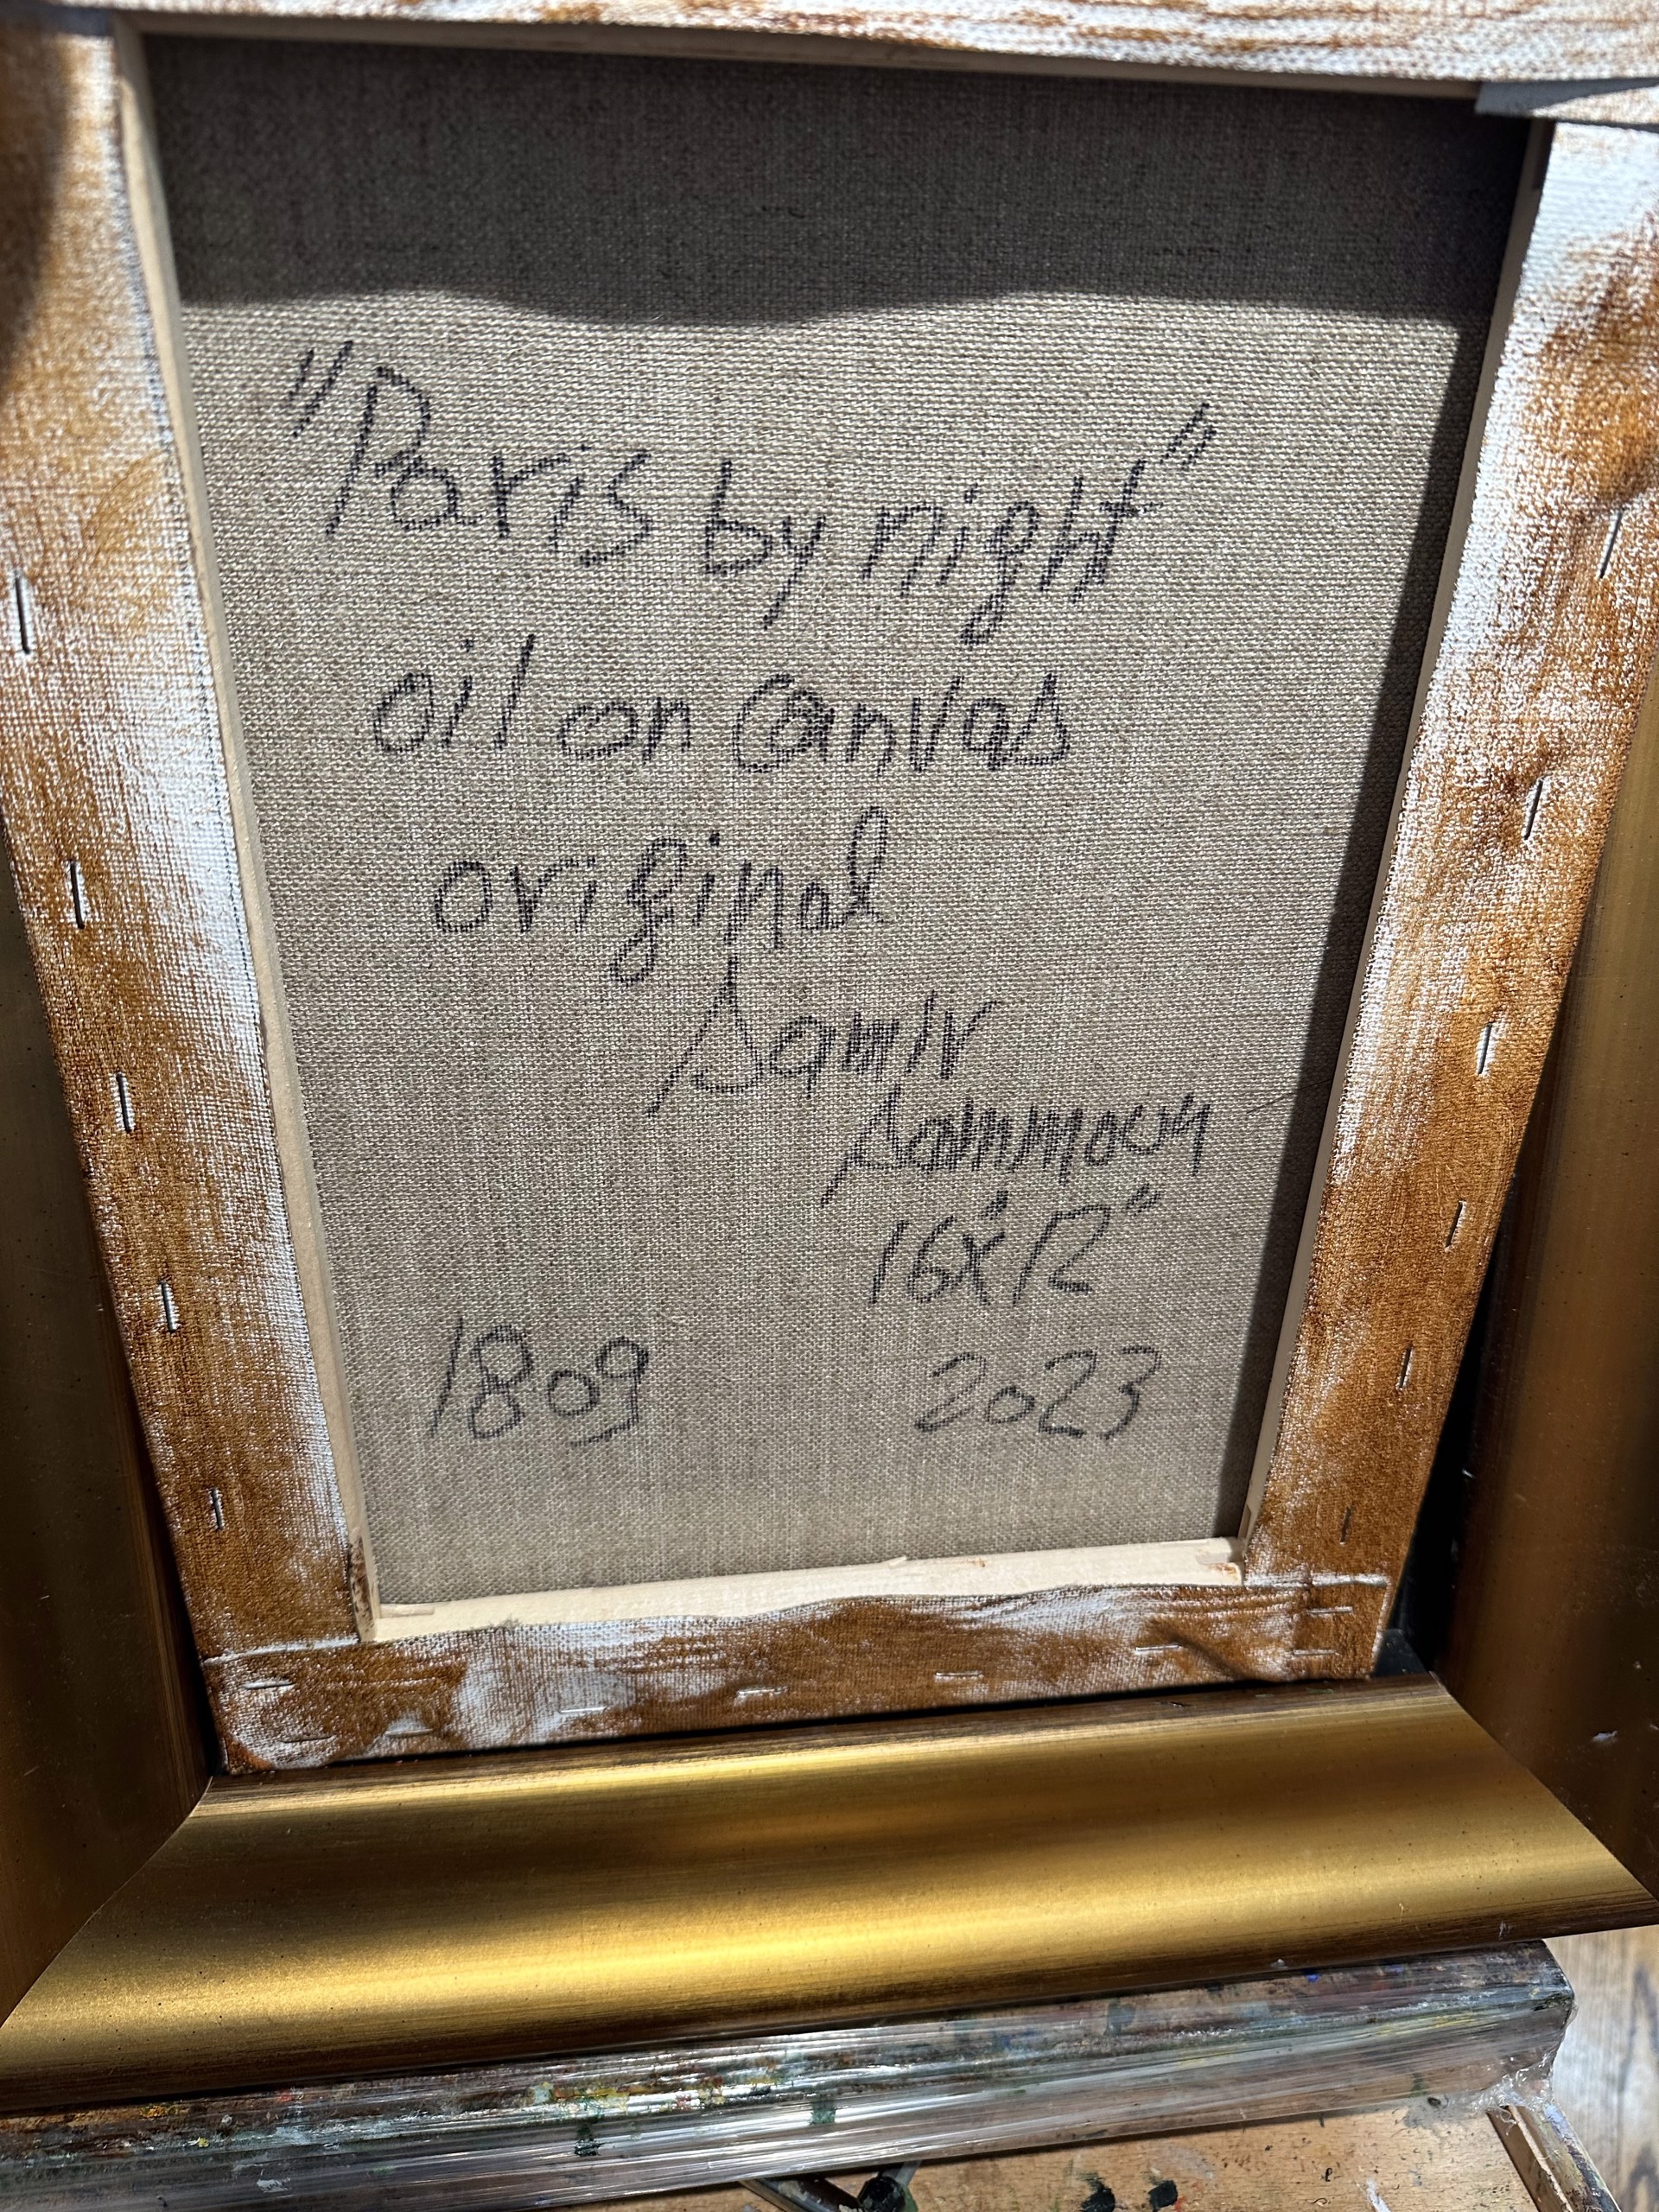 "Paris by night"
oil on canvas
original
Samir
Sammoun
16"x12"
1809 2023